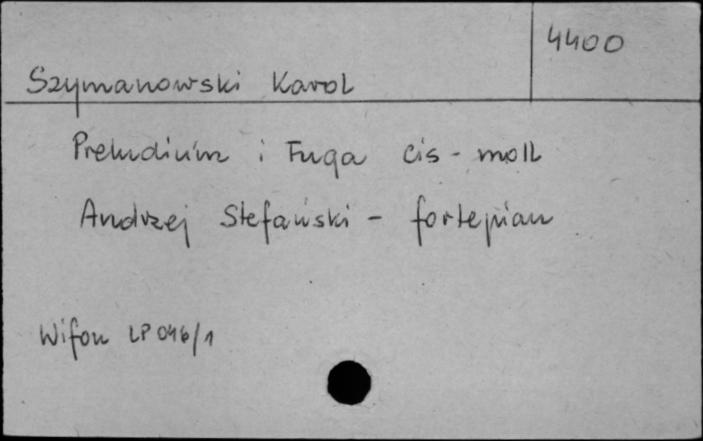 4400
Szymanowski Karol
Preludium i Fuga cis-moll
Andrzej Stefański - fortepian
Wifon LP 046/1